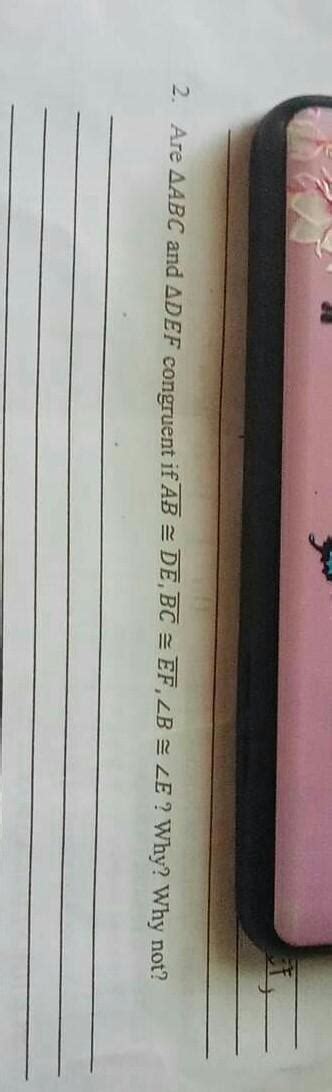 2. Are ΔABC and ΔDEF congruent if A̅B̅ ≅ D̅E̅, B̅C̅ ≅ E̅F̅, ∠B ≅ ∠E ? Why? Why not?